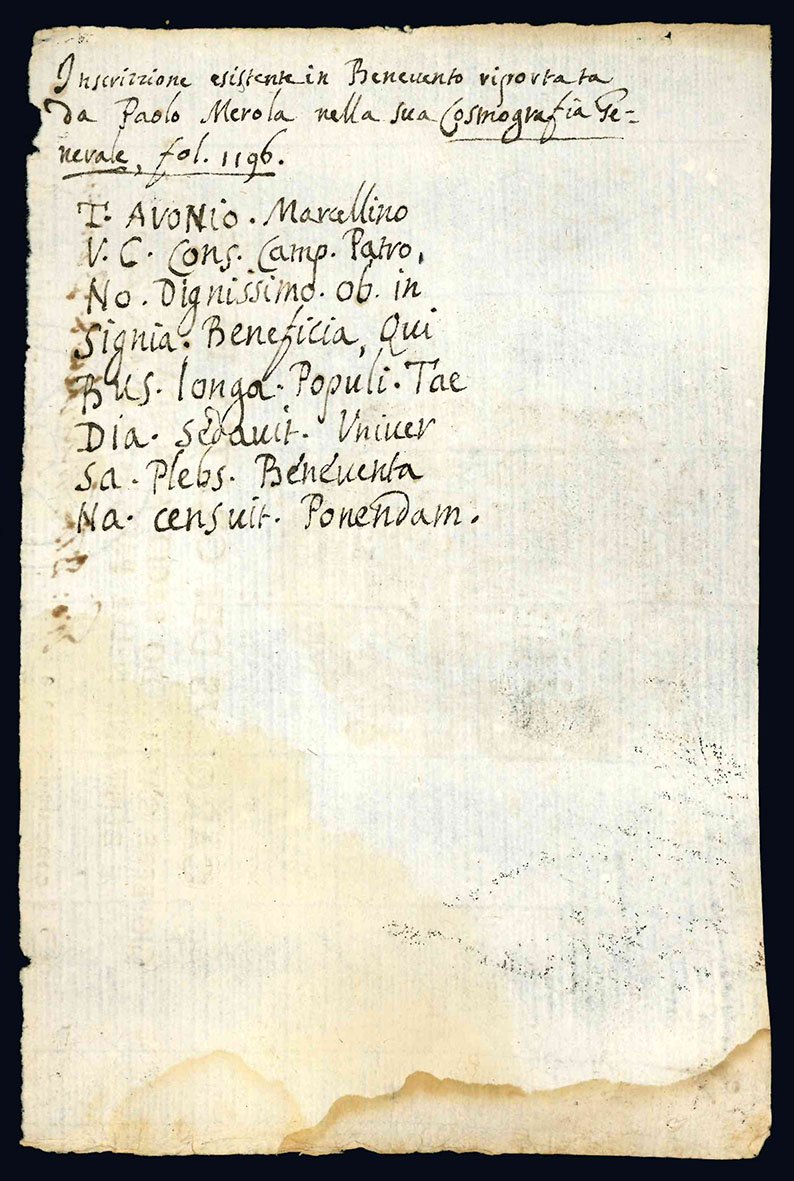 Inscrizzione esistente in Benevento riportata
da Paolo Merola nella sua Cosmografia Ge=
nerale, fol. 1196.
T. AVONIO. Marcellino
V. C. Cons. Camp. Patro,
No. Dignissimo. ob. in
Signia. Beneficia, Qui
Bus. longa. Populi. Tae
Dia. Sedavit. Univer
Sa. Plebs. Beneventa
Na. censuit. Ponendam.